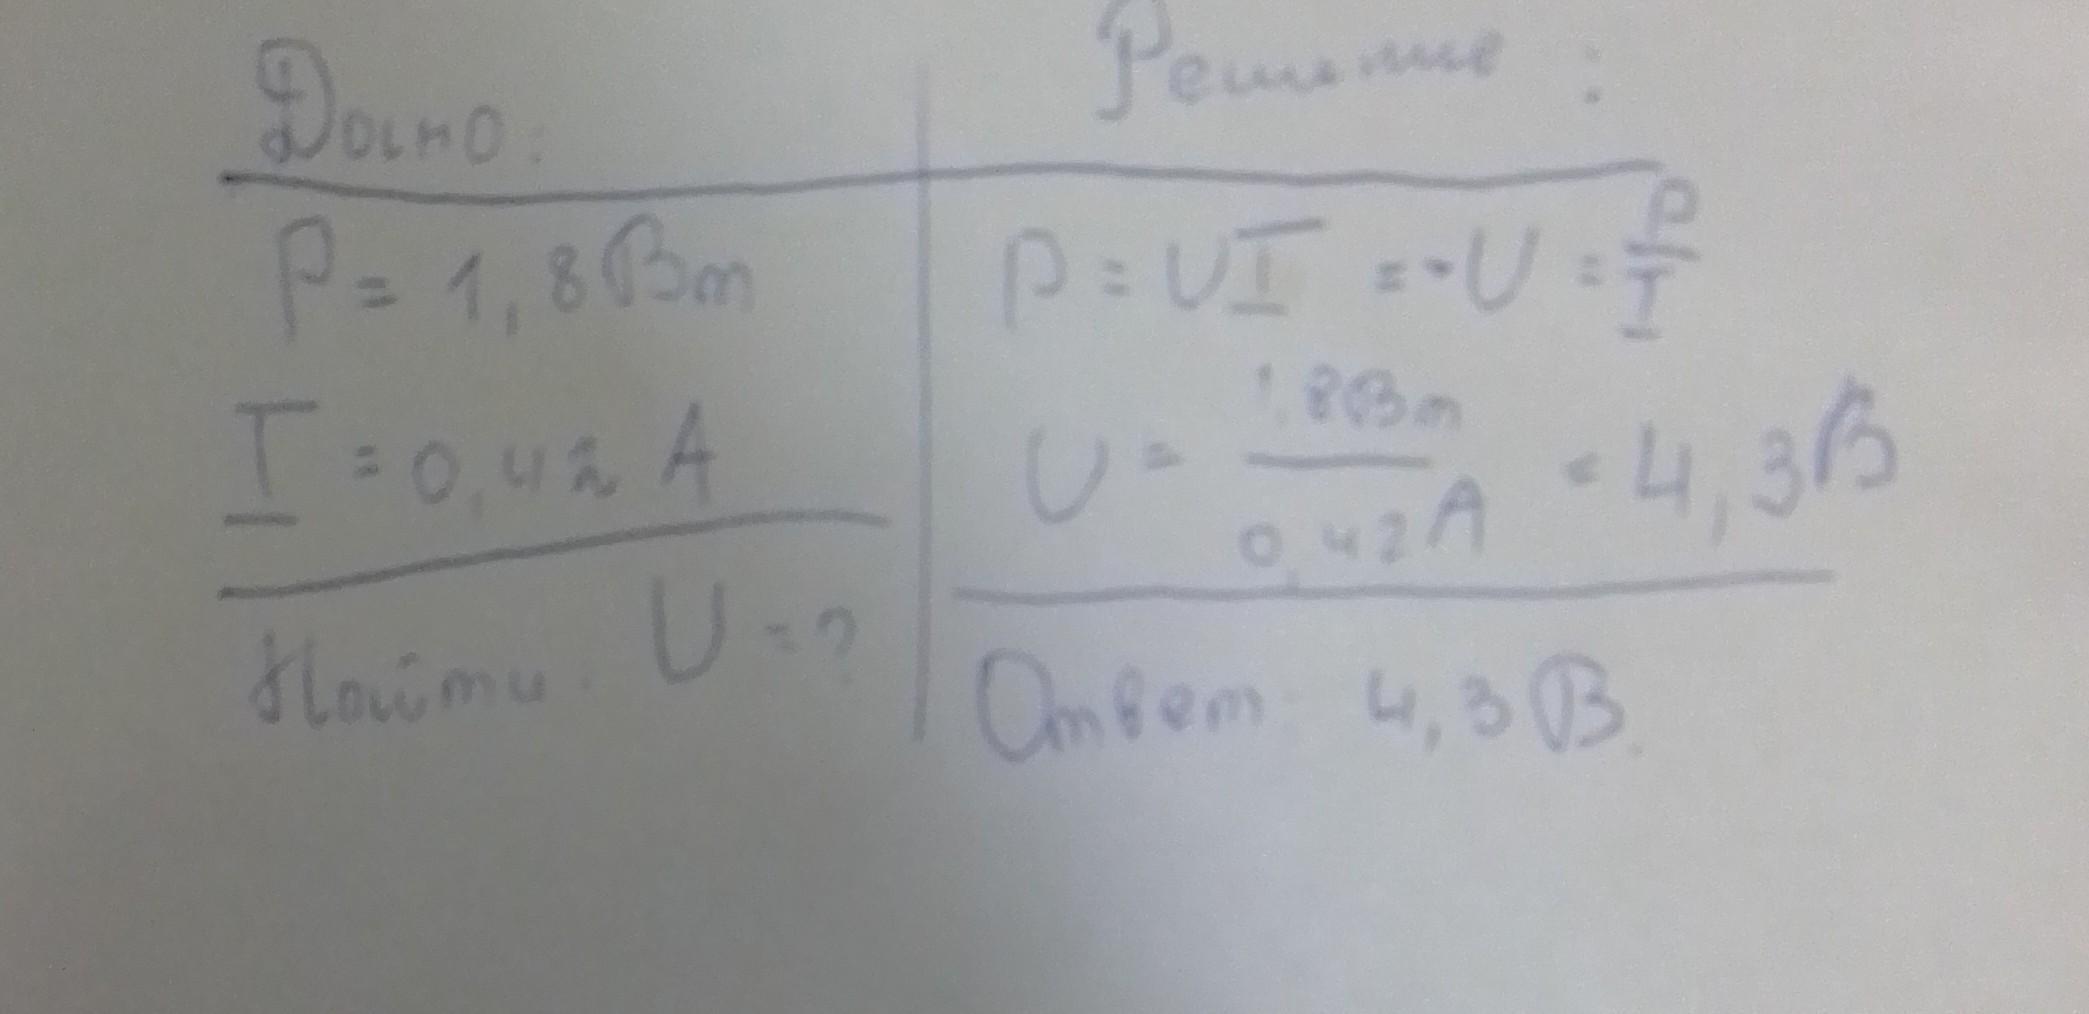 Дано:
P = 1,8 Вт
I = 0,42 А
Найти: U = ?
Решение:
P = UI =- U = P/I
U = 1,8Вт/0,42А = 4,3В
Ответ: 4,3В.